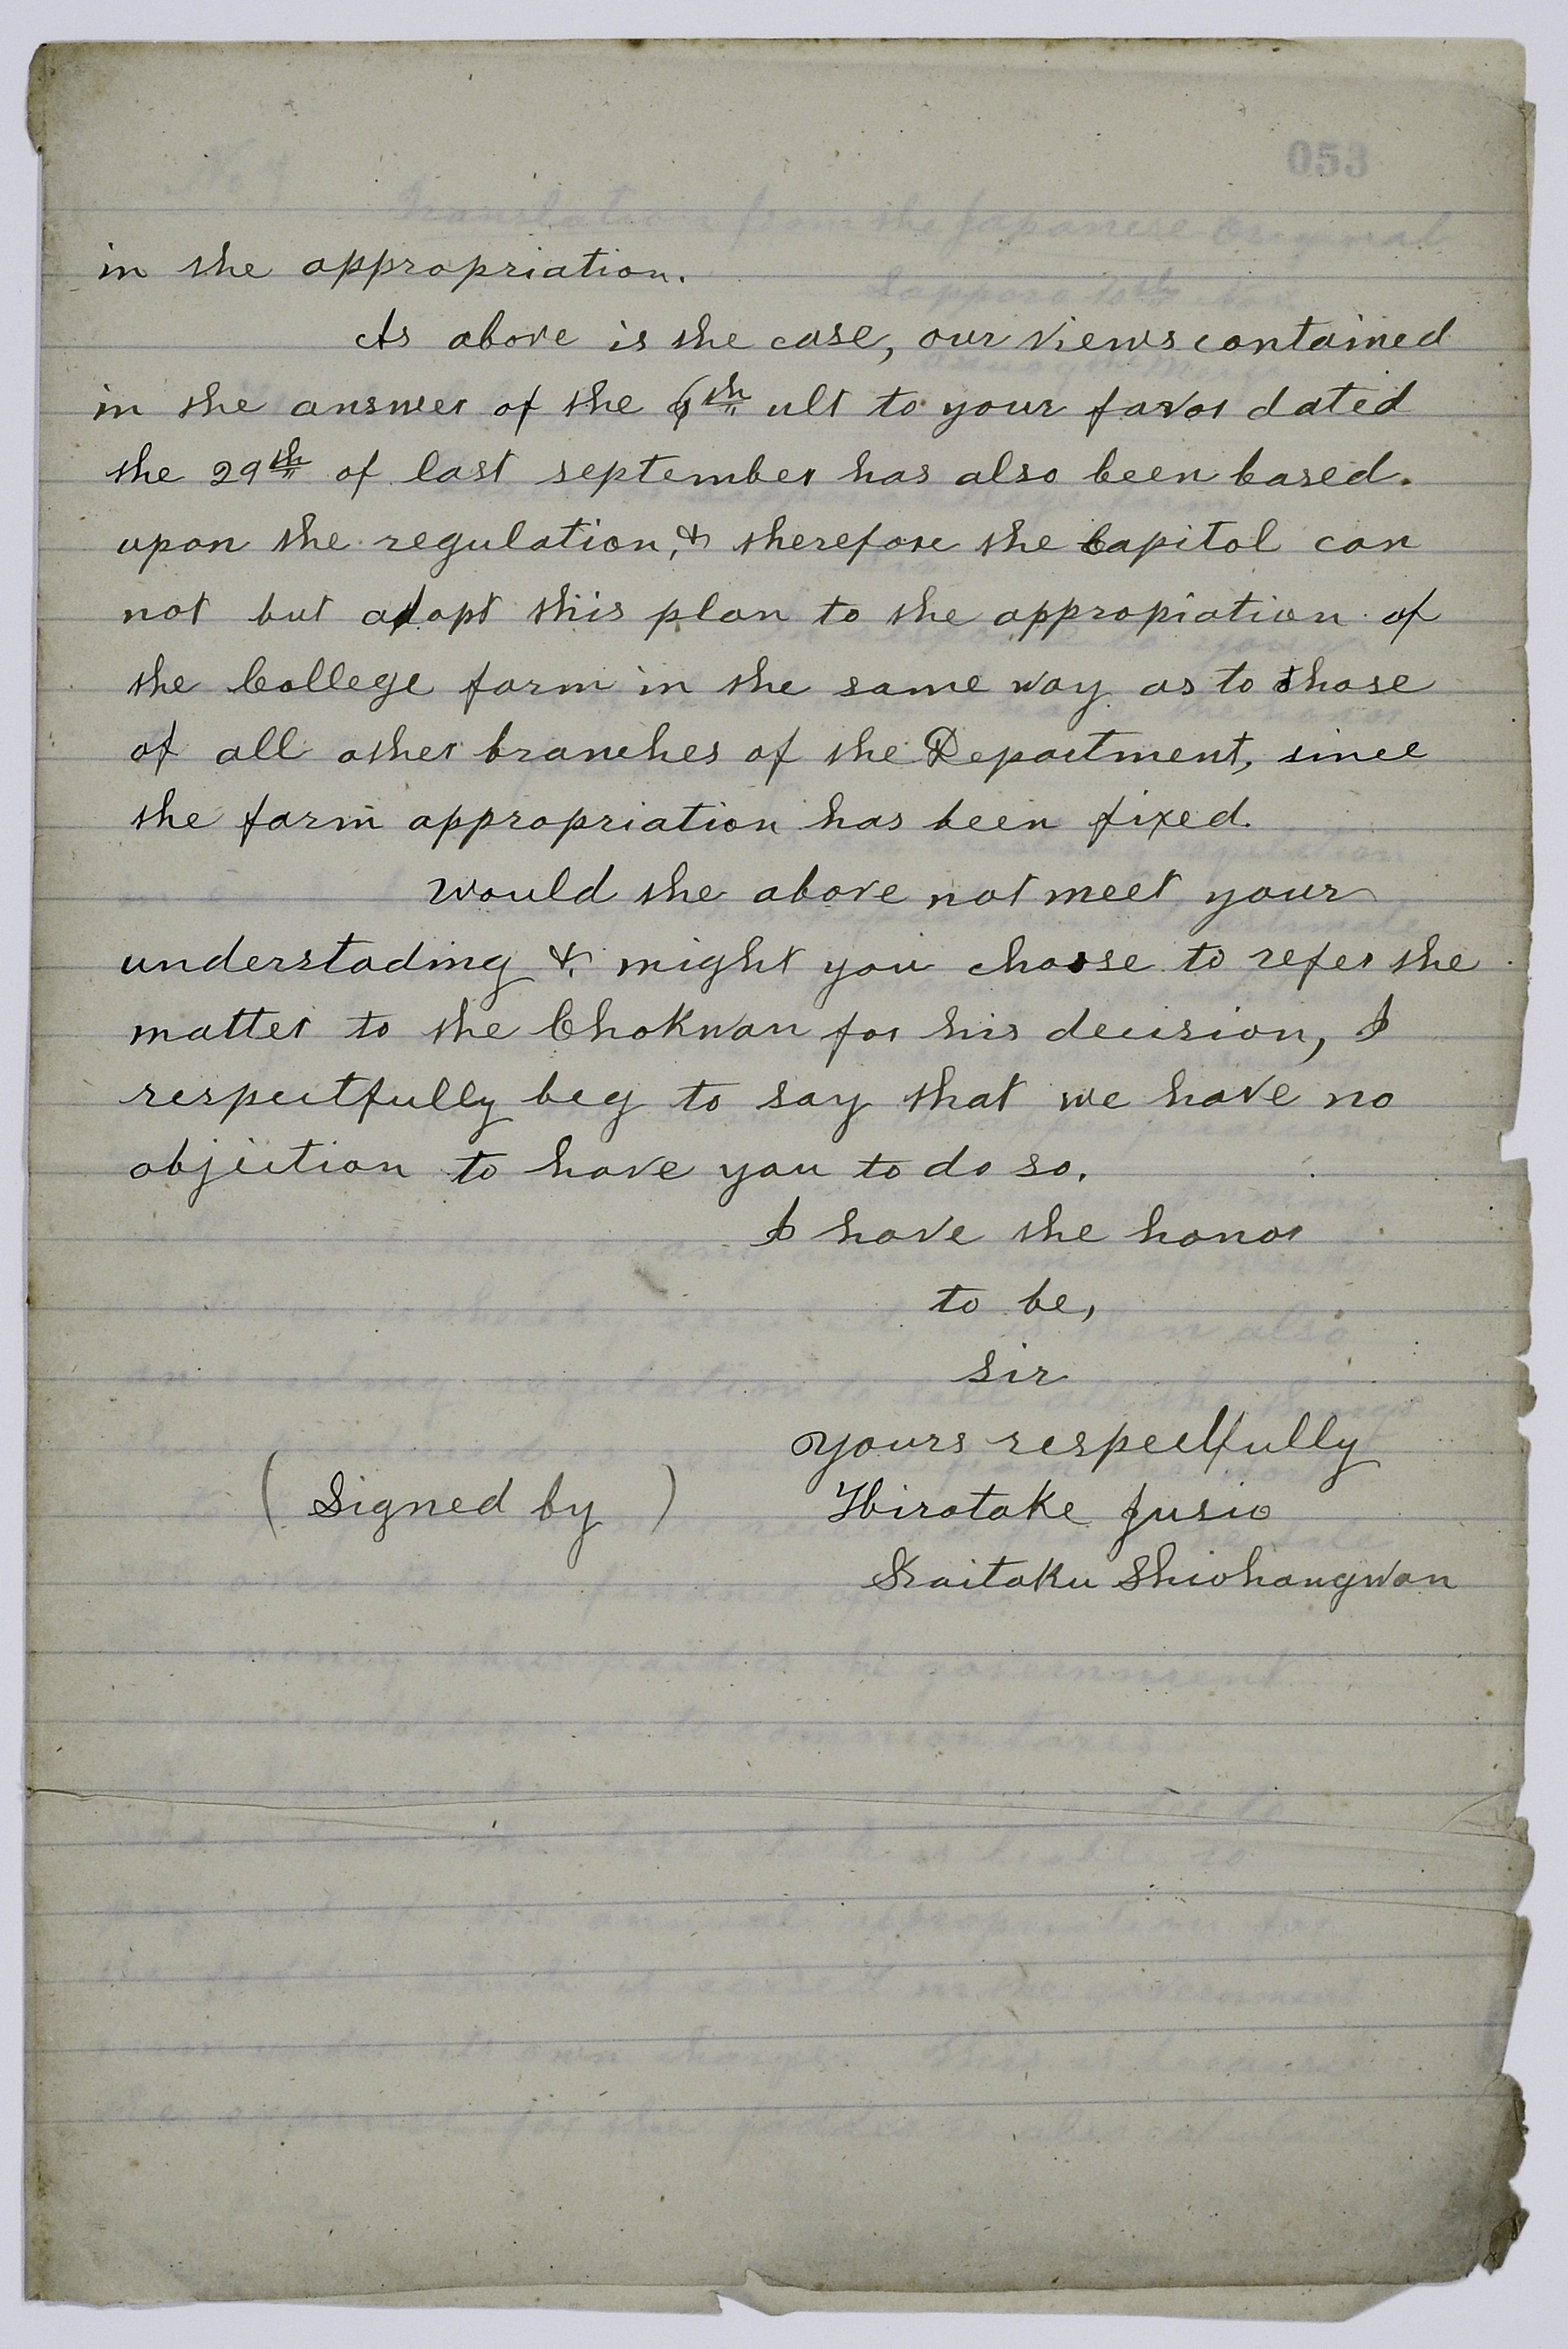 053
in the appropriation.
As above is the case, our views contained
in the answer of the 6th ult to your favor dated
the 29th of last september has also been based.
upon the regulation, & therefore the Capitol can
not but adopt this plan to the appropiation of
the College farm in the same way as to those
of all other branches of the Department, since
the farm appropriation has been fixed.
would the above not meet your
understading & might you choose to refer the
matter to the Chokwan for his decision, I
respectfully beg to say that we have no
objection to have you to do so.
I have the honor
to be,
sir
yours respectfully
(Signed by) Hirotake Jusio
Kaitaku Shiohangwan